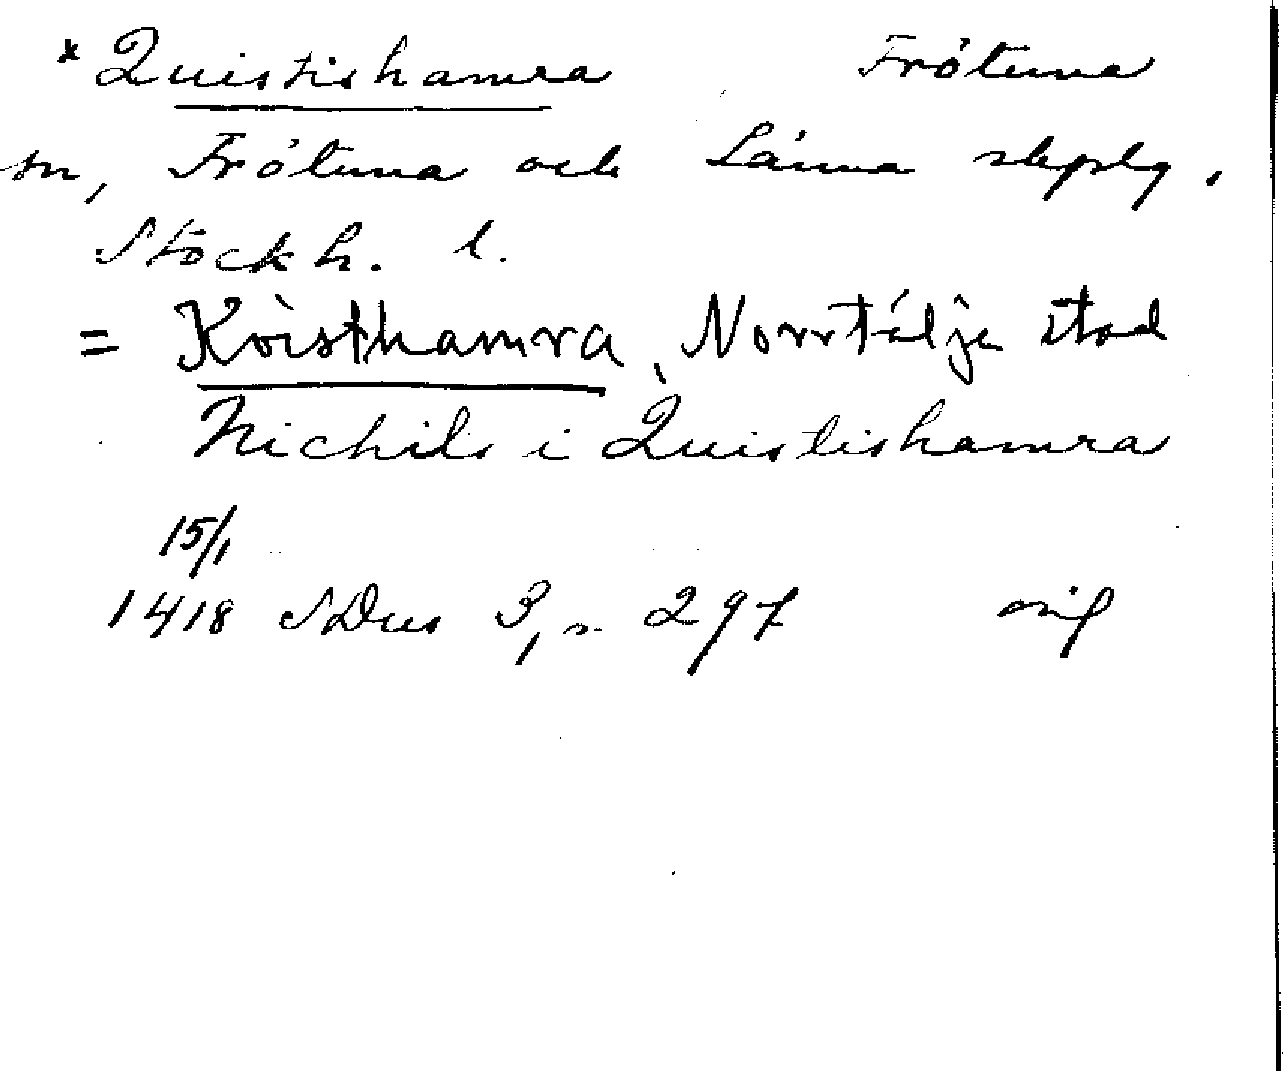 *Quistishamra Frötuna
sn, Frötuna och Länna skplg.
Stockh. l.
= Kvisthamra, Norrtälje stad
Nichils i Quistishamra
15/1
1418 SDns 3, s. 297 orig